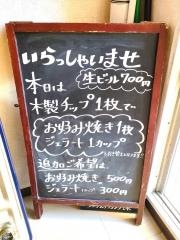 いらっしゃいませ
本日は
生ビール700円
木製チップ1枚で
お好み焼き1枚
ジェラート1カップ
追加ご希望は
お好み焼き 500円
ジェラート 300円